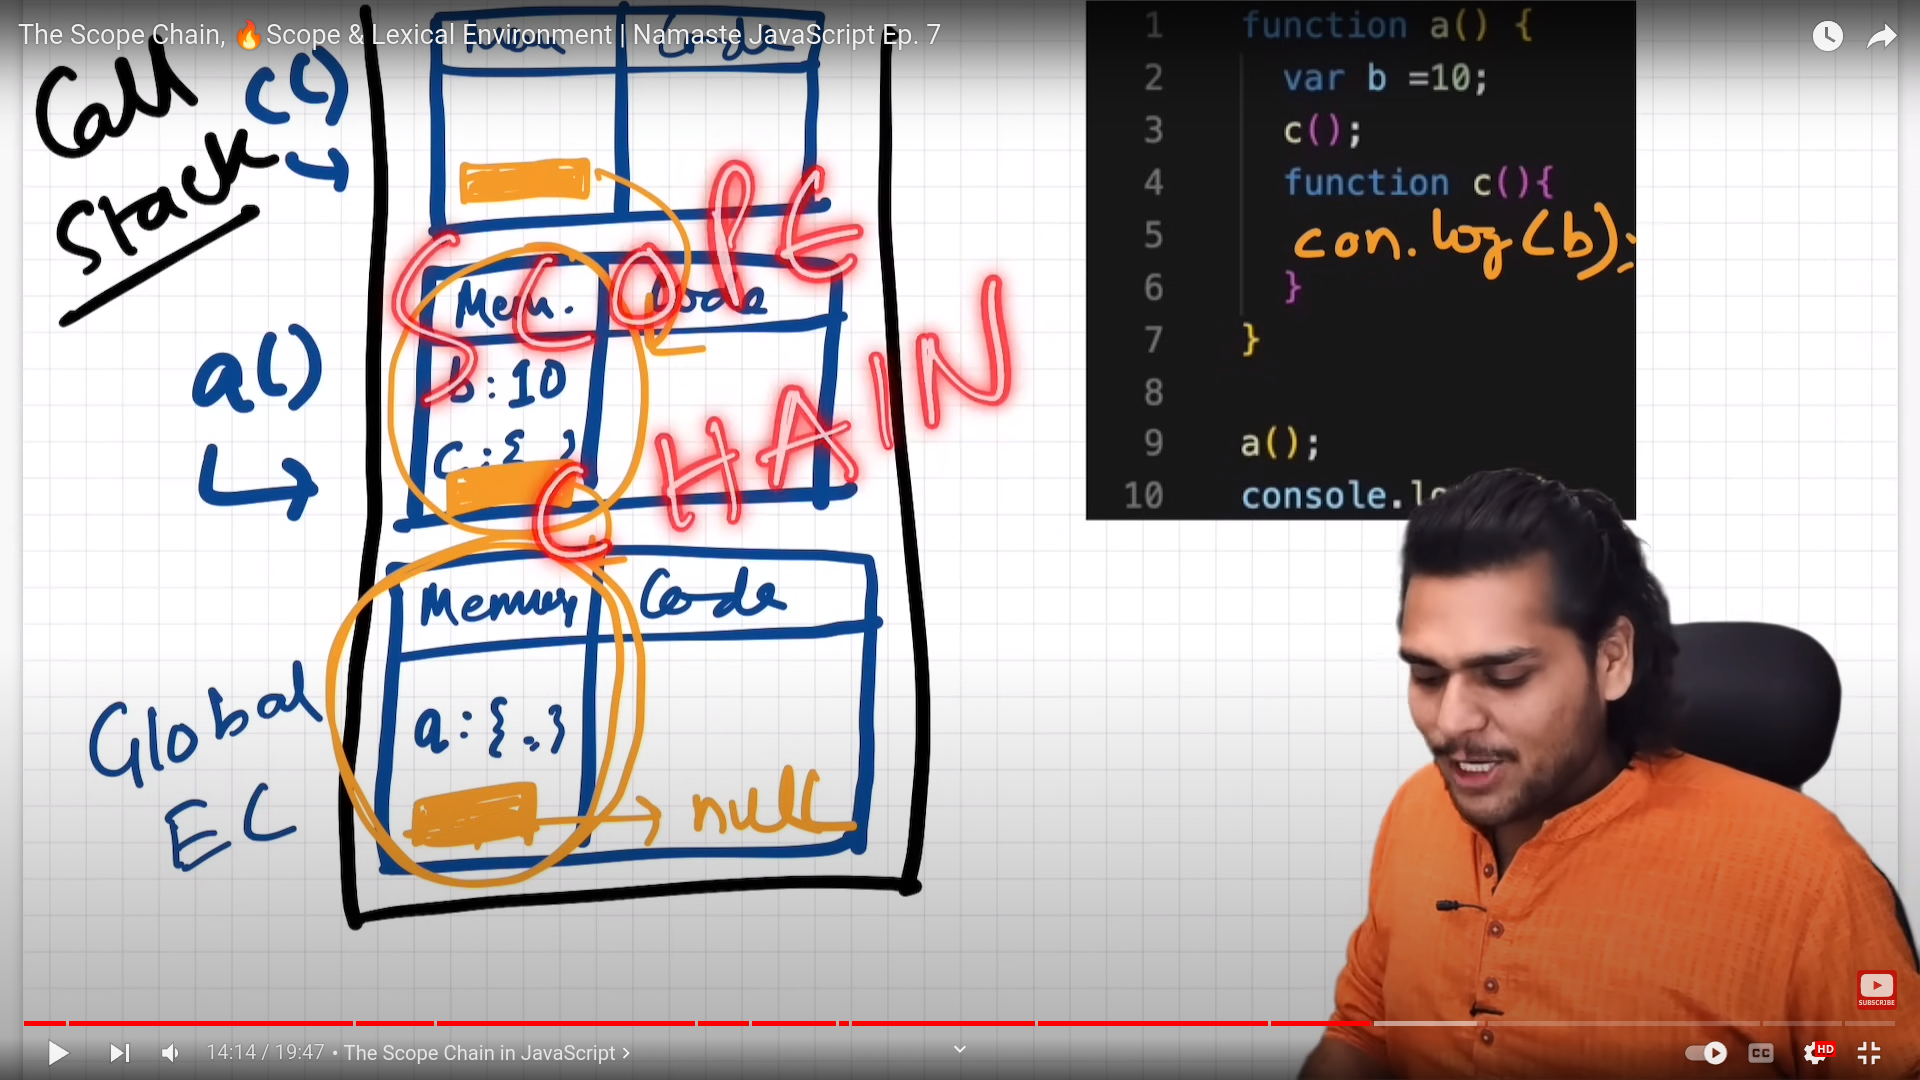 The Scope Chain, 🔥Scope & Lexical Environment | Namaste JavaScript Ep. 7
Call
Stack
c()
Mem Code
a()
Mem. Code
b : 10
c : { }
SCOPE
CHAIN
Global
EC
Memory Code
a : { . }
null
1 function a() {
2 var b =10;
3 c();
4 function c(){
5 con.log(b);
6 }
7 }
8
9 a();
10 console.lo
SUBSCRIBE
14:14 / 19:47 • The Scope Chain in JavaScript >
CC
HD